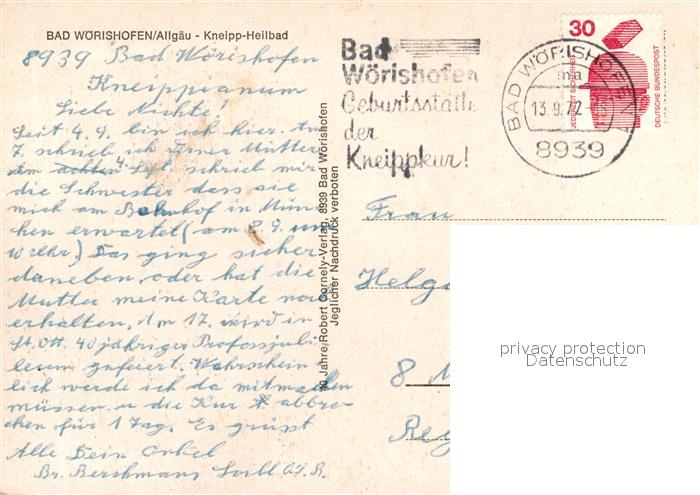 BAD WÖRISHOFEN/Allgäu - Kneipp-Heilbad
8939 Bad Wörishofen
Kneippianum
Liebe Nichte!
Seit 4.9. bin ich hier. Am
7. schrieb ich Deiner Mutter
am achten Spt. schrieb mir
die Schwester dass sie
mich am Bahnhof in Mün-
chen erwartet (am 8.9. um
Uhr.) Das ging sicher
daneben, oder hat die
Mutter meine Karte noch
erhalten. Am 17. wird in
St. Ott. 40 jähriges Professjubi-
leum gefeiert. Wahrschein
lich werde ich da mitmachen
müssen u die Kur abbre-
chen für 1 Tag. Es grüsst
Alle Dein Onkel
Br. Berchmans
40 Jahre/Robert Cornely-Verlag, 8939 Bad Wörishofen
Jeglicher Nachdruck verboten
Bad
Wörishofen
Geburtsstätte
der
Kneippkur!
BAD WÖRISHOFEN
ma
13.9.72
8939
30
JEDERZEIT SICHERHEIT
DEUTSCHE BUNDESPOST
Frau
Helga
8 M
Reg
privacy protection
Datenschutz